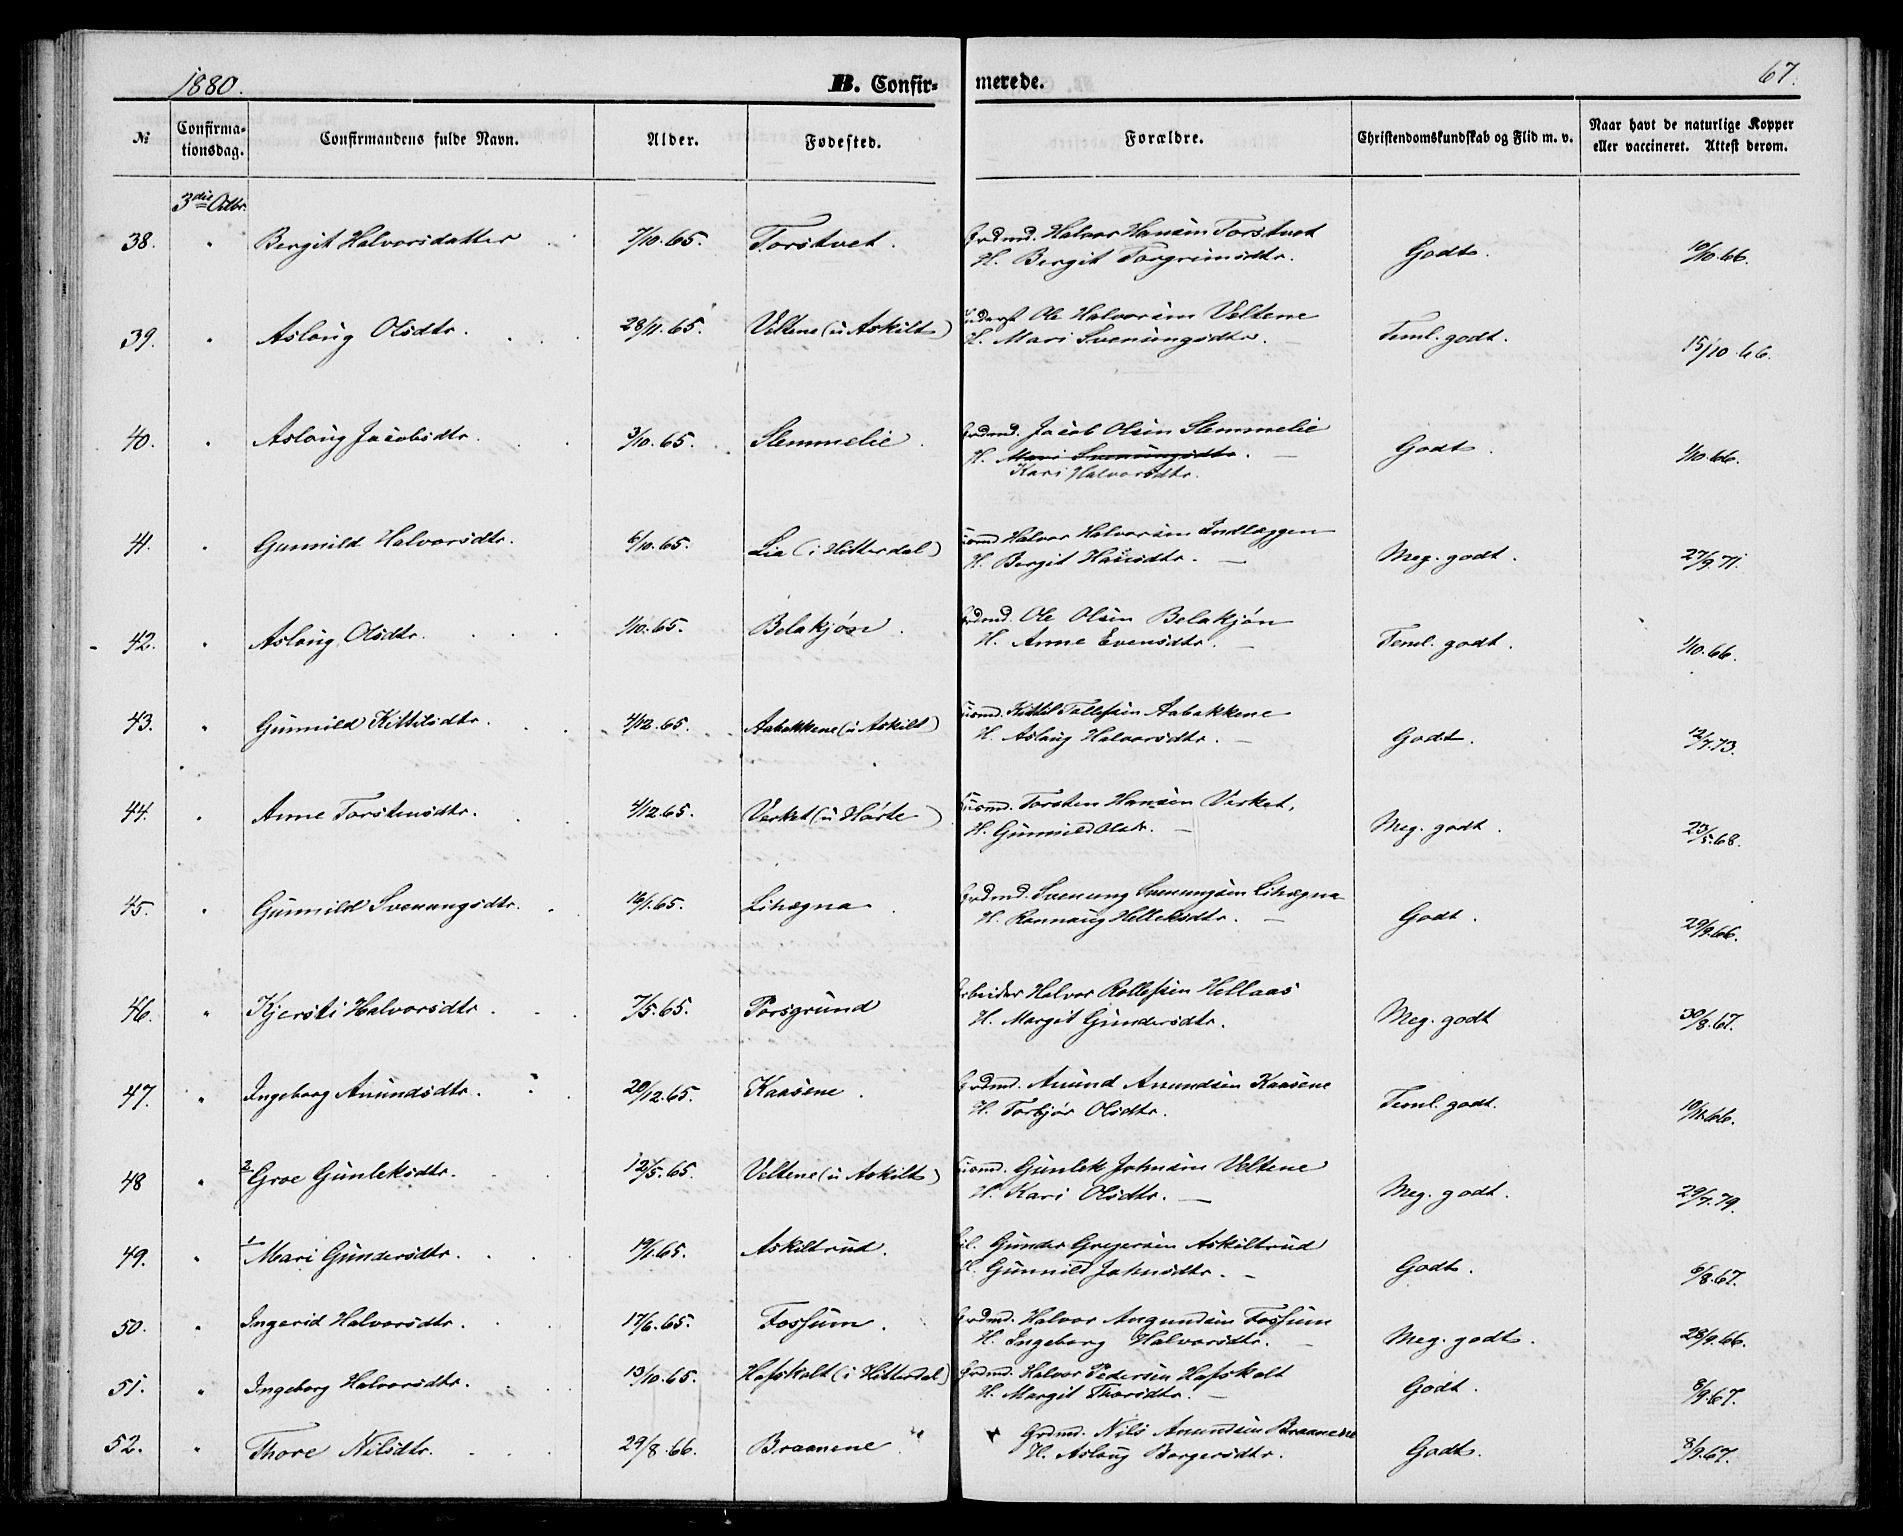 1880.
B. Confir-
merede.
67.
№
Confirma-
tionsdag.
Confirmandens fulde Navn.
Alder.
Fødested.
Forældre.
Christendomskundskab og Flid m. v.
Naar havt de naturlige Kopper
eller vaccineret. Attest derom.
3die Octbr.
38. " Bergit Halvorsdatter 7/10.65. Torstvet. Grdmd. Halvor Hansen Torstvet
H. Bergit Torgrimsdtr. Godt. 10/10.66.
39. " Aslaug Olsdtr. 28/11.65. Veltene (u Askilts) Inderst Ole Halvorsen Veltene
H. Mari Svenungsdtr. — Teml. godt. 15/10.66.
40. " Aslaug Jacobsdtr. 3/10.65. Slemmelie. Grdmd. Jacob Olsen Slemmelie
H. Mari Svenungsdtr. — Godt. 1/10.66.
Kari Halvorsdtr.
41. " Gunnild Halvorsdtr. 6/10.65. Lia (i Hitterdal) Husmd Halvor Halvorsen Indlæggen
H. Bergit Hansdtr. — Meg. godt. 27/9.71.
42. " Aslaug Olsdtr. 1/10.65. Belakjøn. Grdmd. Ole Olsen Belakjøn
H. Anne Evensdtr. — Teml. godt. 1/10.66.
43. " Gunnild Kittilsdtr. 4/12.65. Aabakkene (u Askilt) Husmd. Kittil Tollefsen Aabakkene
H. Aslaug Halvorsdtr. — Godt. 12/7.73.
44. " Anne Torstensdtr. 4/12.65. Verket (u Hørte) Husmd. Torsten Hansen Verket.
H. Gunnild Olsdtr. — Meg. godt. 23/5.68.
45. " Gunnild Svenungsdtr. 16/1.65. Lihægna. Grdmd. Svenung Svenungsen Lihægna
H. Rannaug Helleksdtr. — Godt. 29/9.66.
46. " Kjersti Halvorsdtr. 7/5.65. Porsgrund Arbeider Halvor Rollefsen Hellaas
H. Margit Gundersdtr. Meg. godt 30/8.67.
47. " Ingeborg Anundsdtr. 20/12.65. Kaasene. Grdmd. Anund Anundsen Kaasene
H. Torbjør Olsdtr. Teml. godt. 10/11.66.
48 " 2 Groe Gunleksdtr. 12/5.65. Veltene (u Askilts) Husmd. Gunlek Johnsen Veltene
H. Kari Olsdtr. — Meg. godt. 29/7.79.
49. " 1 Mari Gundersdtr. 19/1.65. Askiltrud. Gunder Gregersen Askiltrud
H. Gunnild Johnsdtr. — Godt. 6/8.67.
50. " Ingerid Halvorsdtr. 17/6.65. Fossum. Grdmd. Halvor Amundsen Fossum
H. Ingeborg Halvorsdtr. — Meg. godt. 28/9.66.
51. " Ingeborg Halvorsdtr. 13/10.65. Hafskolt (i Hitterdal) Grdmd. Halvor Pedersen Hafskolt
H. Margit Thorsdtr. — Godt. 8/9.67.
52. " Thore Nilsdtr. 29/8.66. Braanene. Grdmd. Nils Anundsen Braanene
H. Aslaug Borgersdtr. Godt. 8/9.67.